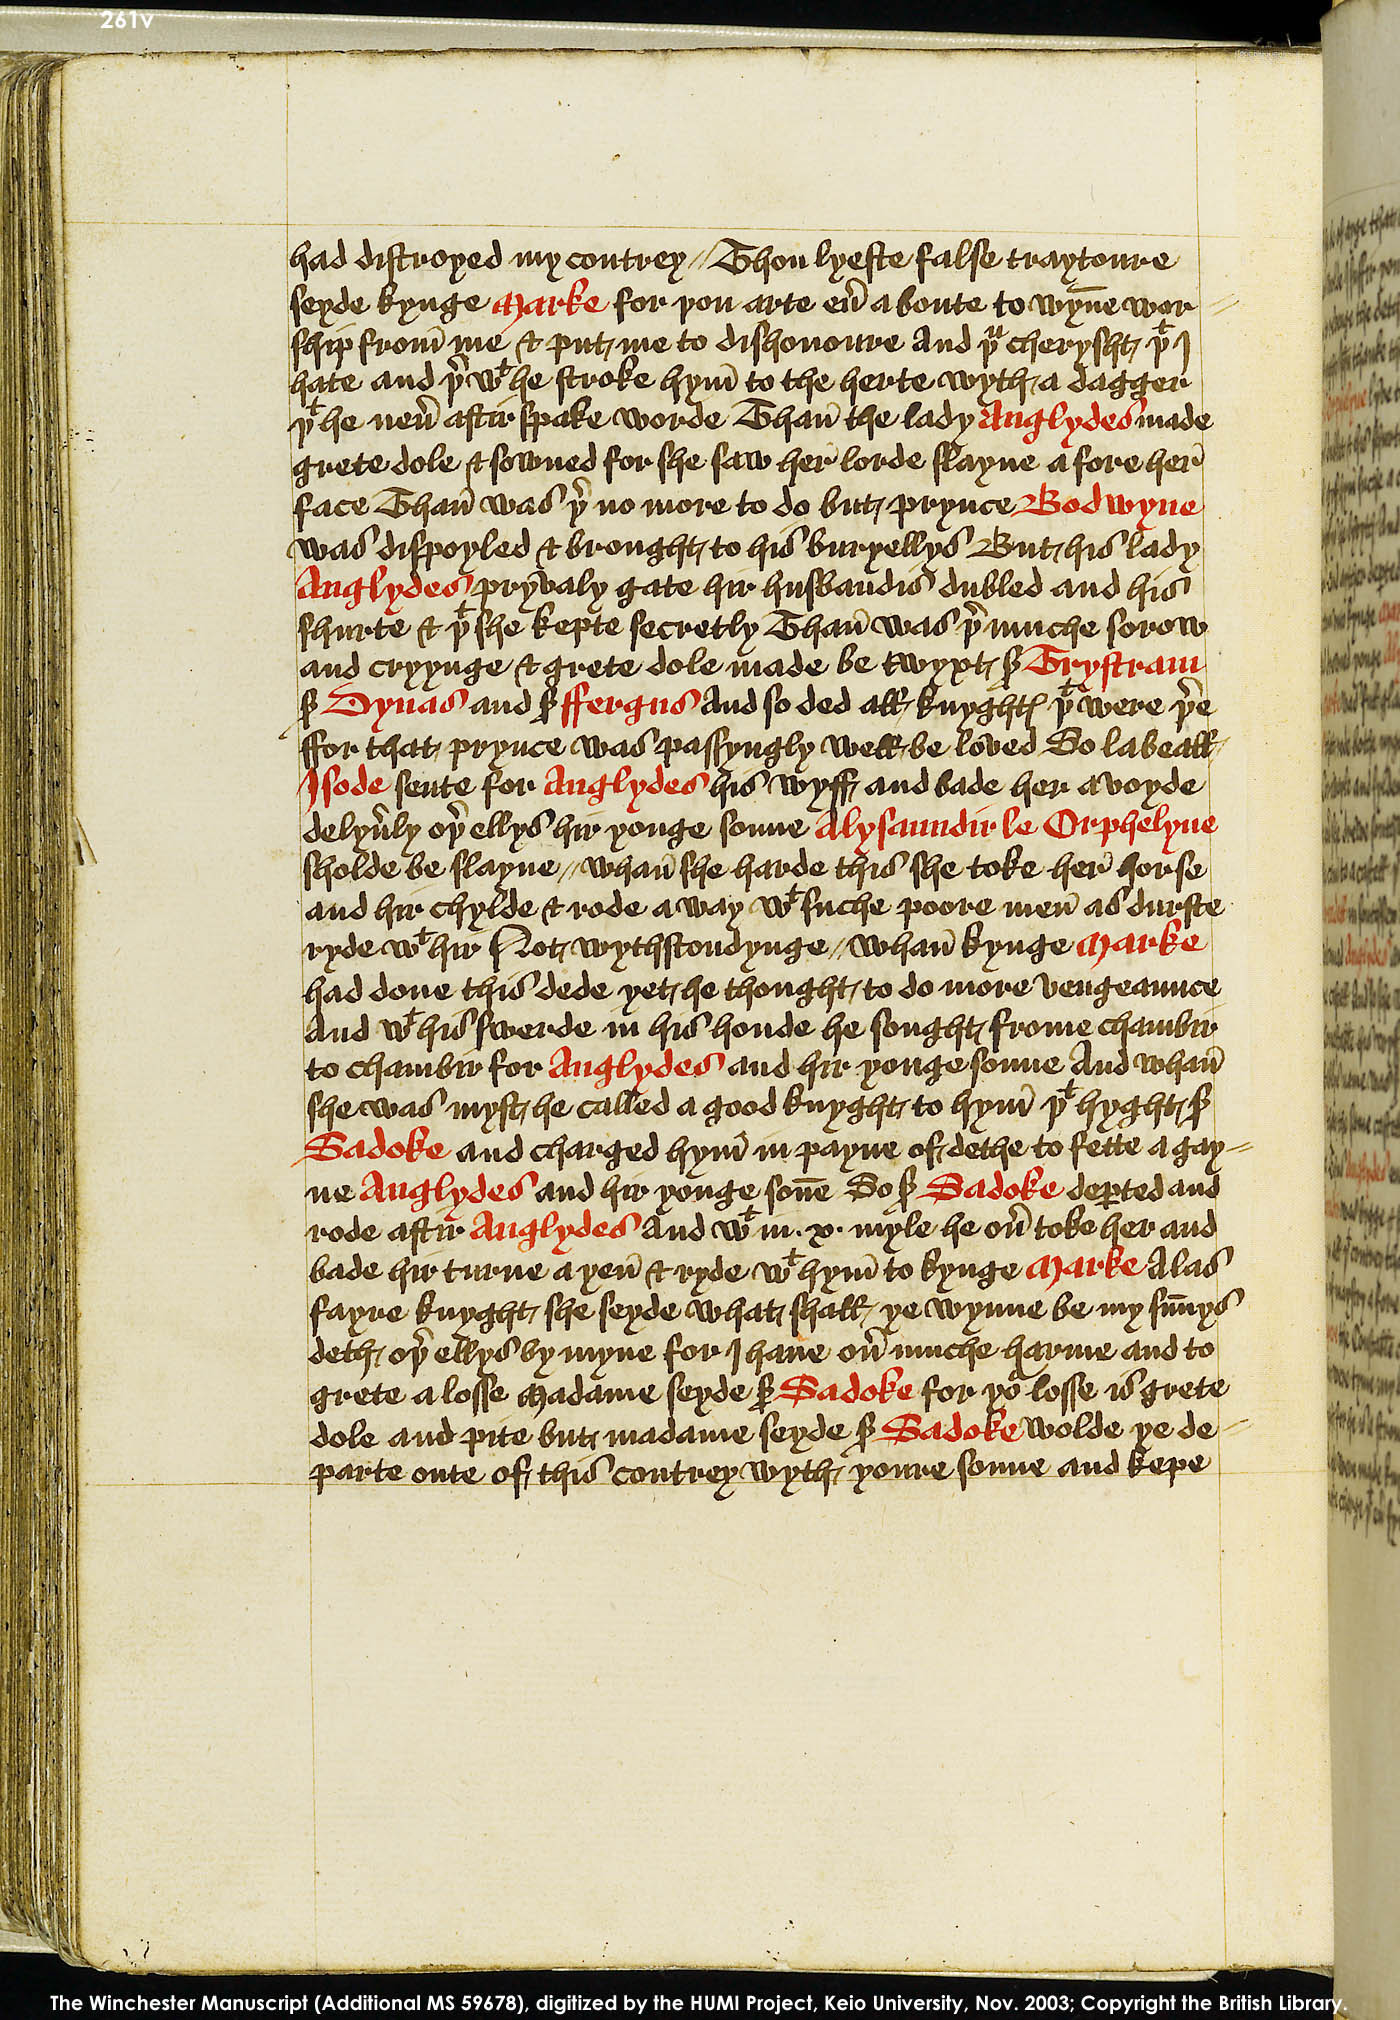 261v
had distroyed my contrey // Thou lyeste false traytoure
seyde kynge Marke for þou arte eu̾ a boute to wyn̄e wor=
ship from̄ me & put me to dishonoure And þᵘ cherysht þᵗ I
hate and þ̾ wᵗ he stroke hym̄ to the herte wyth a dagger
þᵗ he neu̾ aftir spake worde Than̄ the lady Anglydes made
grete dole & sowned for she saw her lorde slayne a fore her
face Than̄ was þ̾ no more to do but prynce Bodwyne
was dispoyled & brought to his buryellys But his lady
Anglydes pryvaly gate hir husbandis dubled and his
shurte & þᵗ she kepte secretly Than̄ was þ̾ muche sorow
and cryynge & grete dole made be twyxt sꝛ Trystram
sꝛ Dynas and sꝛ ffergus And so ded all knyghtꝭ þᵗ were þ̾e
ffor that prynce was passyngly well be loved So la beall
Isode sente for Anglydes his wyff and bade her avoyde
delyu̾ly oþ̾ ellys hir yonge sonne Alysaundir le Orphelyne
sholde be slayne // whan̄ she harde this she toke her horse
and hir chylde & rode a way wᵗ suche poore men̄ as durste
ryde wᵗ hir Not wythstondynge // whan̄ kynge Marke
had done this dede yet he thought to do more vengeaunce
And wᵗ his swerde in his honde he sought frome chambir
to chambir for Anglydes and hir yonge sonne And whan̄
she was myst he called a good knyght to hym̄ þᵗ hyght sꝛ
Sadoke and charged hym̄ in payne of dethe to fette a gay=
ne Anglydes and hir yonge son̄e So sꝛ Sadoke deꝑted and
rode aftir Anglydes And wᵗ in .x. myle he ou̾ toke her and
bade hir turne a yen̄ & ryde wᵗ hym̄ to kynge Marke Alas
fayre knyght she seyde what shall ye wynne be my sun̄ys
deth oþ̾ ellys by myne for I haue ou̾ muche harme and to
grete a losse Madame seyde sꝛ Sadoke for yoʳ losse is grete
dole and pite but madame seyde sꝛ Sadoke wolde ye de=
parte oute of this contrey wyth youre sonne and kepe
The Winchester Manuscript (Additional MS 59678), digitized by the HUMI Project, Keio University, Nov. 2003; Copyright the British Library.